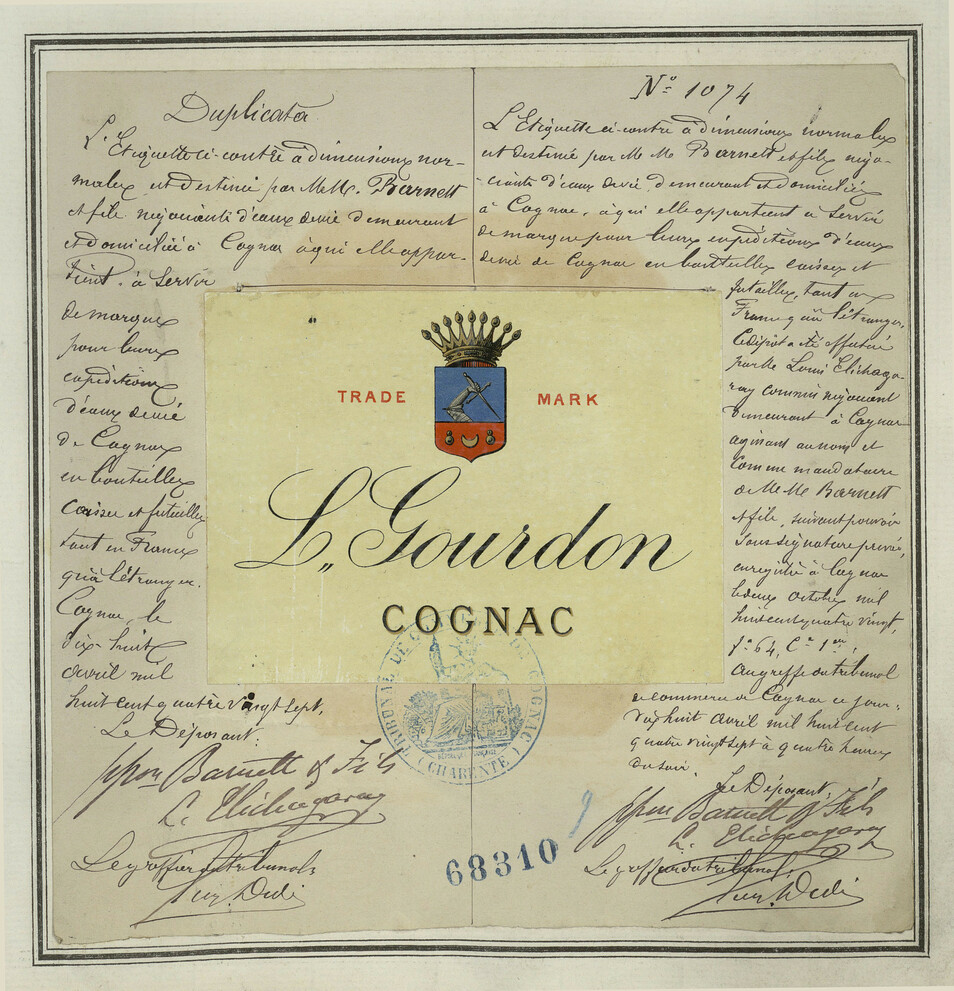 Duplicata
L'Etiquette ci-contre à dimensions nor-
males est destinée par MM. Barnett
et fils négociants d'eaux de vie demeurant
et domiciliés à Cognac à qui elle appar-
tient. à servir
de marque
pour leurs
expéditions
d'eaux de vie
de Cognac
en bouteilles
caisses et futailles
tant en France
qu'à l'étranger.
Cognac, le
dix-huit
avril mil
huit cent quatre vingt sept.
Le Déposant:
Barnett & Fils
L. Elichagaray
Le greffier du tribunal
No 1074
L'Etiquette ci-contre à dimensions normales
est destinée par MM Barnett et fils négo-
ciants d'eaux de vie, demeurant et domiciliés
à Cognac, à qui elle appartient à servir
de marque pour leurs expéditions d'eaux
de vie de Cognac en bouteilles caisses et
futailles, tant en
France qu'à l'étranger.
Le dépôt a été effectué
par Mr Louis Elichaga-
ray commis négociant
demeurant à Cognac
agissant au nom et
comme mandataire
de MM Barnett
et fils, suivant pouvoir
sous signature privée,
enregistré à Cognac
le deux octobre mil
huit cent quatre vingt,
fo 64, Co 1er,
au greffe du tribunal
de commerce de Cognac ce jour,
dix huit avril mil huit cent
quatre vingt sept à quatre heures
du soir.
Le Déposant:
Barnett & Fils
L. Elichagaray
Le greffier du tribunal,
TRADE MARK
L. Gourdon
COGNAC
TRIBUNAL DE COGNAC
CHARENTE
68310